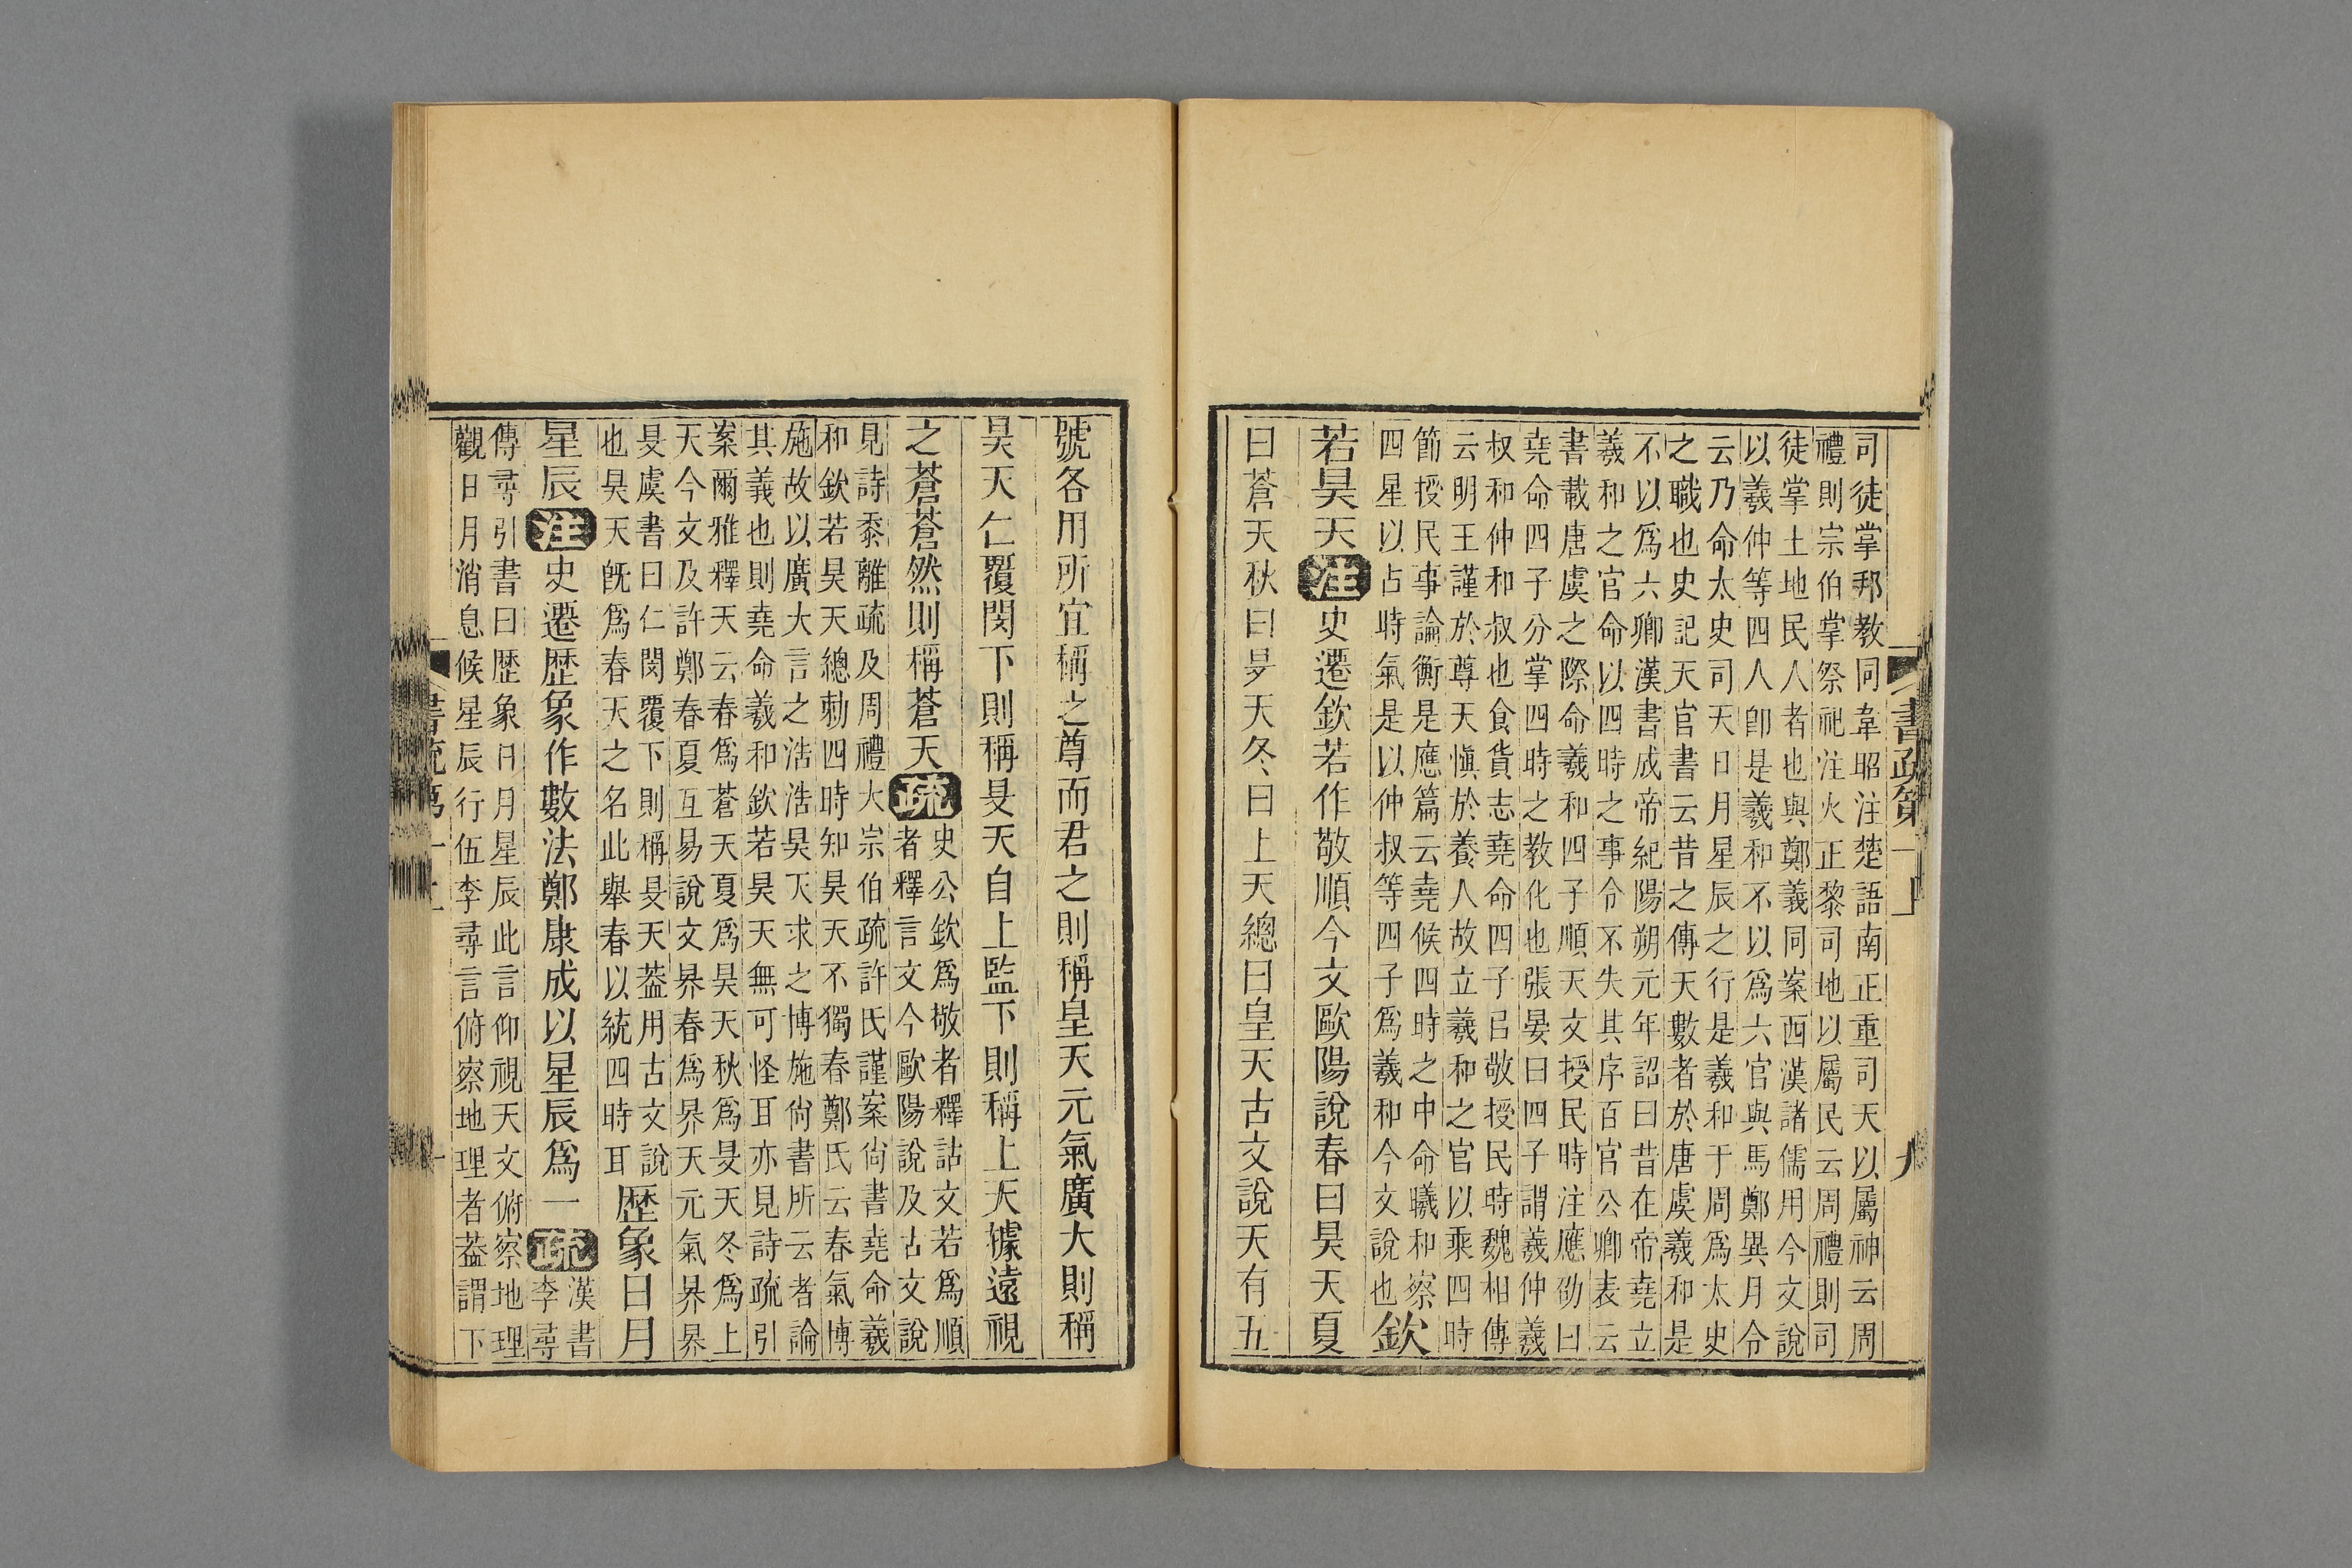 書疏第一上　九
司徒掌邦教同韋昭注楚語南正重司天以屬神云周
禮則宗伯掌祭祀注火正黎司地以屬民云周禮則司
徒掌土地民人者也與鄭義同案西漢諸儒用今文說
以羲仲等四人卽是羲和不以爲六官與馬鄭異月令
云乃命太史司天日月星辰之行是羲和于周爲太史
之職也史記天官書云昔之傳天數者於唐虞羲和是
不以爲六卿漢書成帝紀陽朔元年詔曰昔在帝堯立
羲和之官命以四時之事令不失其序百官公卿表云
書載唐虞之際命羲和四子順天文授民時注應劭曰
堯命四子分掌四時之教化也張晏曰四子謂羲仲羲
叔和仲和叔也食貨志堯命四子㠯敬授民時魏相傳
云明王謹於尊天愼於養人故立羲和之官以乘四時
節授民事論衡是應篇云堯候四時之中命曦和察
四星以占時氣是以仲叔等四子爲羲和今文說也
欽
若昊天注史遷欽若作敬順今文歐陽說春曰昊天夏
曰蒼天秋曰旻天冬曰上天總曰皇天古文說天有五
號各用所宜稱之尊而君之則稱皇天元氣廣大則稱
昊天仁覆閔下則稱旻天自上監下則稱上天據遠視
之蒼蒼然則稱蒼天疏
史公欽爲敬者釋詁文若爲順
者釋言文今歐陽說及古文說
見詩黍離疏及周禮大宗伯疏許氏謹案尙書堯命羲
和欽若昊天總勅四時知昊天不獨春鄭氏云春氣博
施故以廣大言之浩浩昊天求之博施尙書所云者論
其義也則堯命羲和欽若昊天無可怪耳亦見詩疏引
案爾雅釋天云春爲蒼天夏爲昊天秋爲旻天冬爲上
天今文及許鄭春夏互易說文昦春爲昦天元氣昦昦
旻虞書曰仁閔覆下則稱旻天葢用古文說
也昊天旣爲春天之名此舉春以統四時耳
歷象日月
星辰注史遷歷象作數法鄭康成以星辰爲一疏
漢書
李尋
傳尋引書曰歷象日月星辰此言仰視天文俯察地理
觀日月消息候星辰行伍李尋言俯察地理者葢謂下
書疏第一上